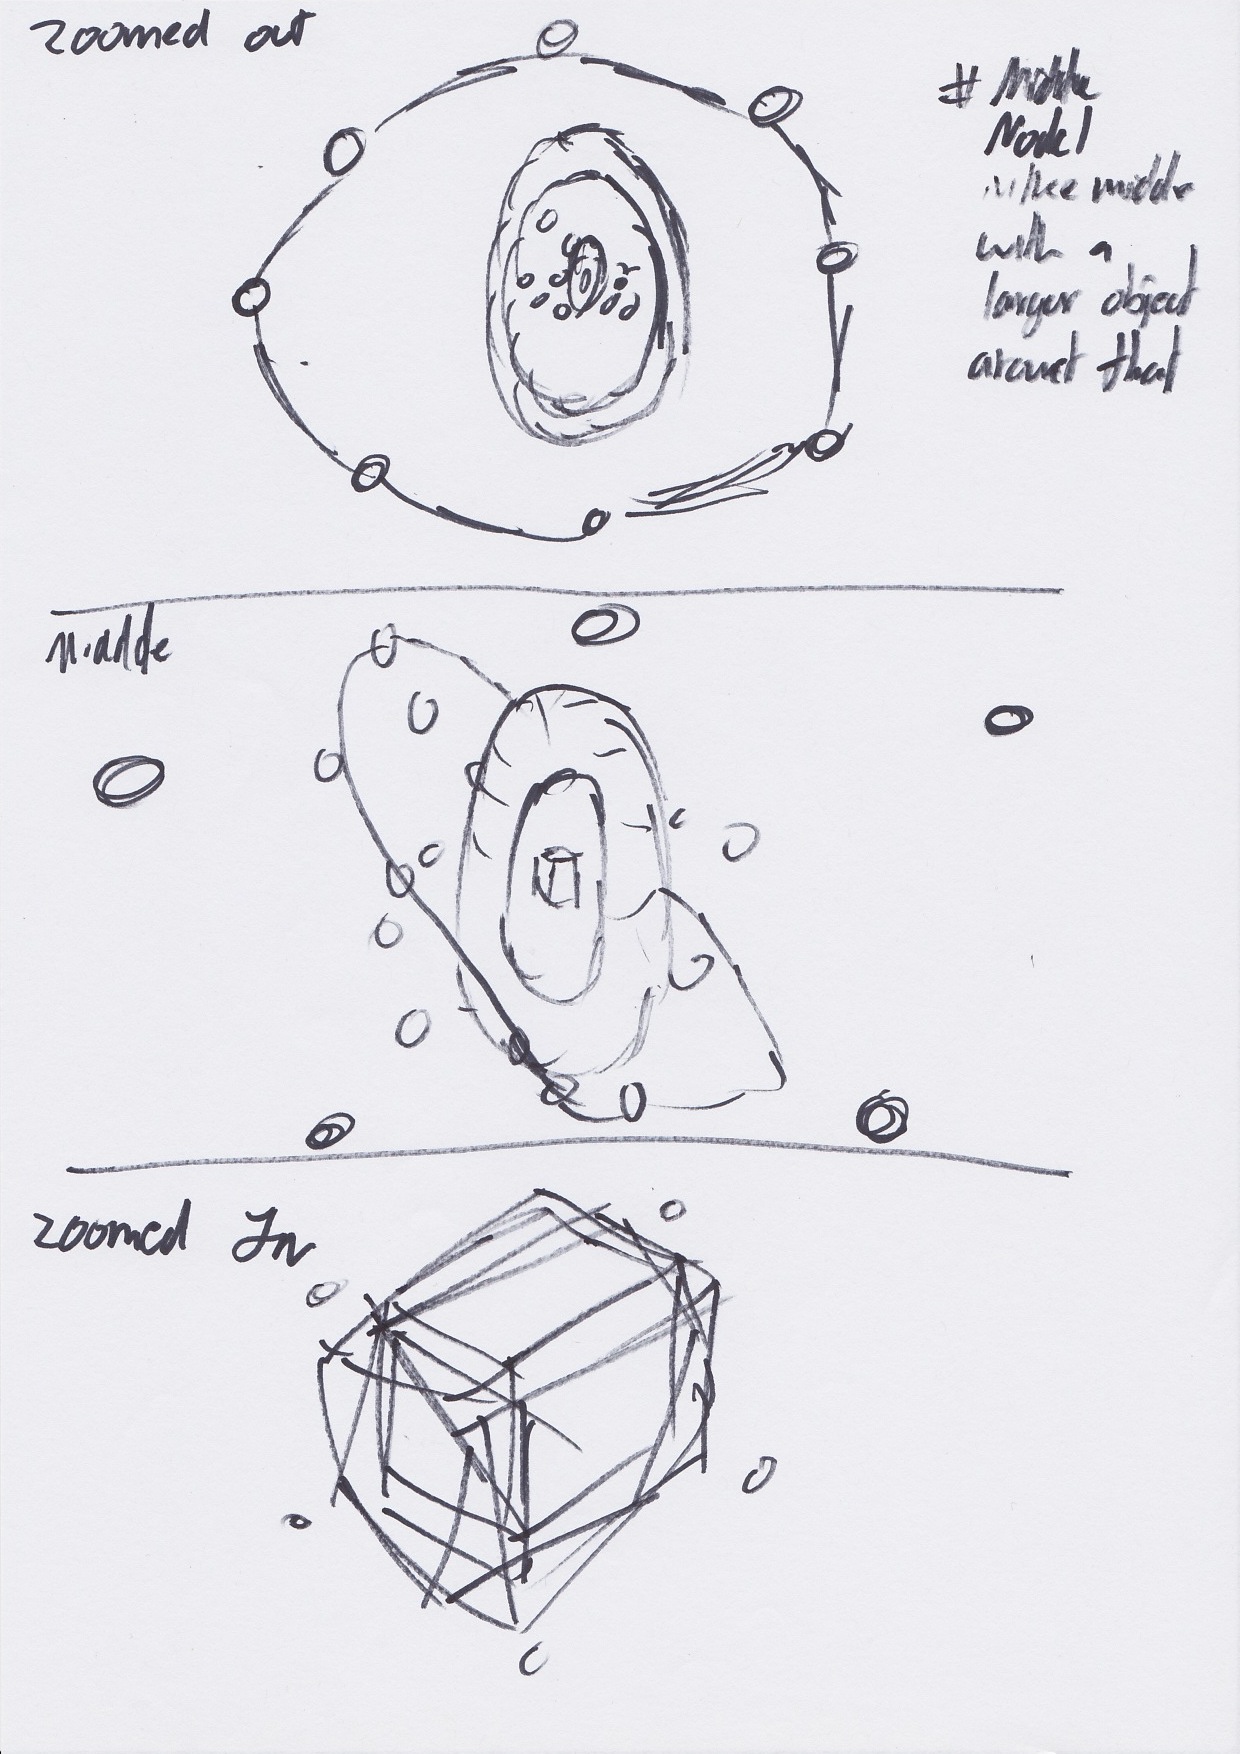 zoomed out
# Middle
Model
in the middle
with a
larger object
around that
Middle
zoomed In